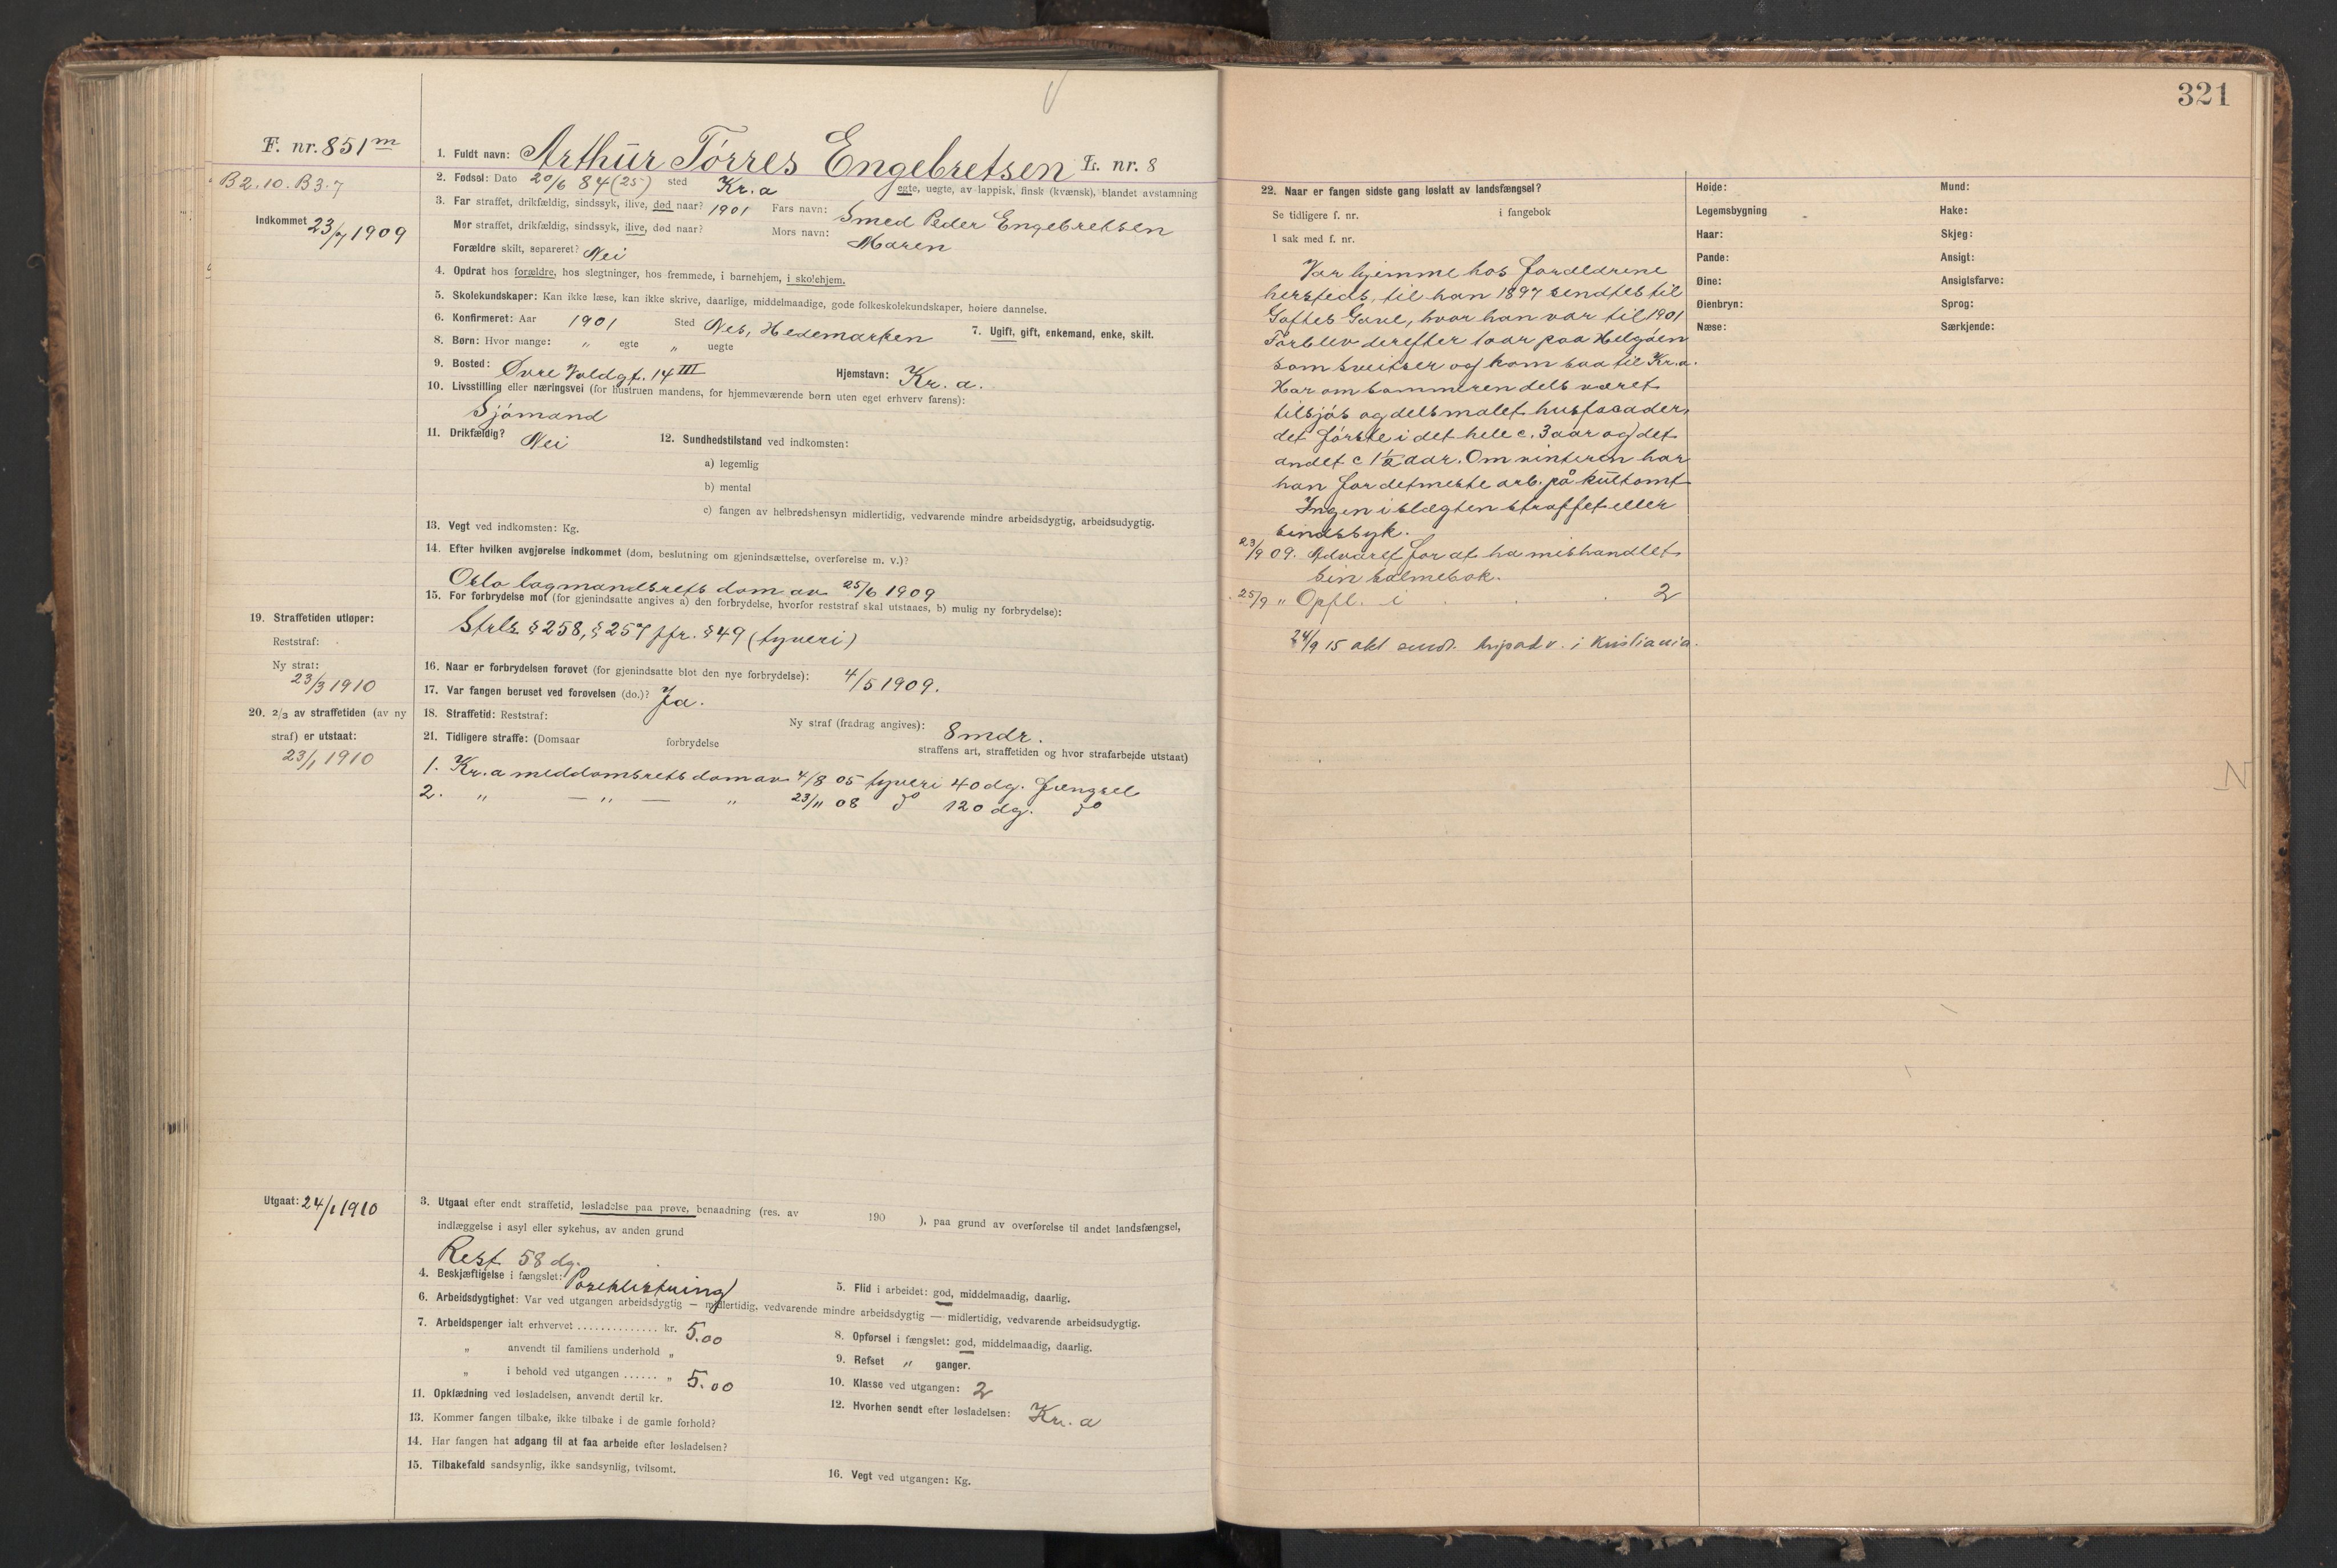 321
F. nr. 851 m
1. Fuldt navn: Arthur Tórres Engebretsen L. nr. 8
B2.10. B3.7
2. Fødsel: Dato 20/6 84 (25) sted Kr.a egte, uegte, av lappisk, finsk (kvænsk), blandet avstamning
Indkommet 23/7 1909
3. Far straffet, drikfældig, sindssyk, ilive, død naar? 1901 Fars navn: Smed Peder Engebretsen
Mor straffet, drikfældig, sindssyk, ilive, død naar? Mors navn: Maren
Forældre skilt, separeret? Nei
4. Opdrat hos forældre, hos slegtninger, hos fremmede, i barnehjem, i skolehjem.
5. Skolekundskaper: Kan ikke læse, kan ikke skrive, daarlige, middelmaadige, gode folkeskolekundskaper, høiere dannelse.
6. Konfirmeret: Aar 1901 Sted Nes, Hedemarken 7. Ugift, gift, enkemand, enke, skilt.
8. Børn: Hvor mange: " egte " uegte
9. Bosted: Øvre Voldgt. 14 III Hjemstavn: Kr.a.
10. Livsstilling eller næringsvei (for hustruen mandens, for hjemmeværende børn uten eget erhverv farens):
Sjómand
11. Drikfældig? Nei 12. Sundhedstilstand ved indkomsten:
a) legemlig
b) mental
c) fangen av helbredshensyn midlertidig, vedvarende mindre arbeidsdygtig, arbeidsudygtig.
13. Vegt ved indkomsten: Kg.
14. Efter hvilken avgjørelse indkommet (dom, beslutning om gjenindsættelse, overførelse m. v.)?
Oslo lagmandsrets dom av 25/6 1909
15. For forbrydelse mot (for gjenindsatte angives a) den forbrydelse, hvorfor reststraf skal utstaaes, b) mulig ny forbrydelse):
Strls § 258, § 257 jfr. § 49 (tyveri)
19. Straffetiden utløper:
Reststraf:
Ny straf:
23/3 1910
16. Naar er forbrydelsen forøvet (for gjenindsatte blot den nye forbrydelse): 4/5 1909.
17. Var fangen beruset ved forøvelsen (do.)? Ja.
20. 2/3 av straffetiden (av ny
straf) er utstaat:
23/1 1910
18. Straffetid: Reststraf: Ny straf (fradrag angives): 8 mdr.
21. Tidligere straffe: (Domsaar forbrydelse straffens art, straffetiden og hvor strafarbeide utstaat)
1. Kr.a meddomsrets dom av 4/8 05 tyveri 40 dg. fængsel
2. " — " — " 23/11 08 do 120 dg. do
Utgaat: 24/1 1910
3. Utgaat efter endt straffetid, løsladelse paa prøve, benaadning (res. av 190 ), paa grund av overførelse til andet landsfængsel,
indlæggelse i asyl eller sykehus, av anden grund
Rest 58 dg.
4. Beskjæftigelse i fængslet: Poseklistring
5. Flid i arbeidet: god, middelmaadig, daarlig.
6. Arbeidsdygtighet: Var ved utgangen arbeidsdygtig — midlertidig, vedvarende mindre arbeidsdygtig — midlertidig, vedvarende arbeidsudygtig.
7. Arbeidspenger ialt erhvervet .............. kr. 5.00
8. Opførsel i fængslet: god, middelmaadig, daarlig.
" anvendt til familiens underhold "
9. Refset " ganger.
" i behold ved utgangen ...... " 5.00
10. Klasse ved utgangen: 2
11. Opklædning ved løsladelsen, anvendt dertil kr.
12. Hvorhen sendt efter løsladelsen: Kr.a
13. Kommer fangen tilbake, ikke tilbake i de gamle forhold?
14. Har fangen hat adgang til at faa arbeide efter løsladelsen?
15. Tilbakefald sandsynlig, ikke sandsynlig, tvilsomt.
16. Vegt ved utgangen: Kg.
22. Naar er fangen sidste gang løslatt av landsfængsel?
Se tidligere f. nr. i fangebok
I sak med f. nr.
Var hjemme hos forældrene
hersteds, til han 1897 sendtes til
Toftes Gave, hvor han var til 1901
Forblev derefter 1 aar paa Helgóen
som sveitser og kom saa til Kr.a.
Har om sommeren dels været
tilsjós og dels malet husfacader,
det fórste i det hele c. 3 aar og det
andet c 1 1/2 aar. Om vinteren har
han for det meste arb. på kultomt
Ingen i slægten straffet eller
sindssyk.
23/9 09. Advaret for at ha mishandlet
sin salmebok.
25/9 " Opfl. i . . . 2
24/9 15 akt send. i Kristiania.
Høide:
Legemsbygning
Haar:
Pande:
Øine:
Øienbryn:
Næse:
Mund:
Hake:
Skjeg:
Ansigt:
Ansigtsfarve:
Sprog:
Særkjende:
N